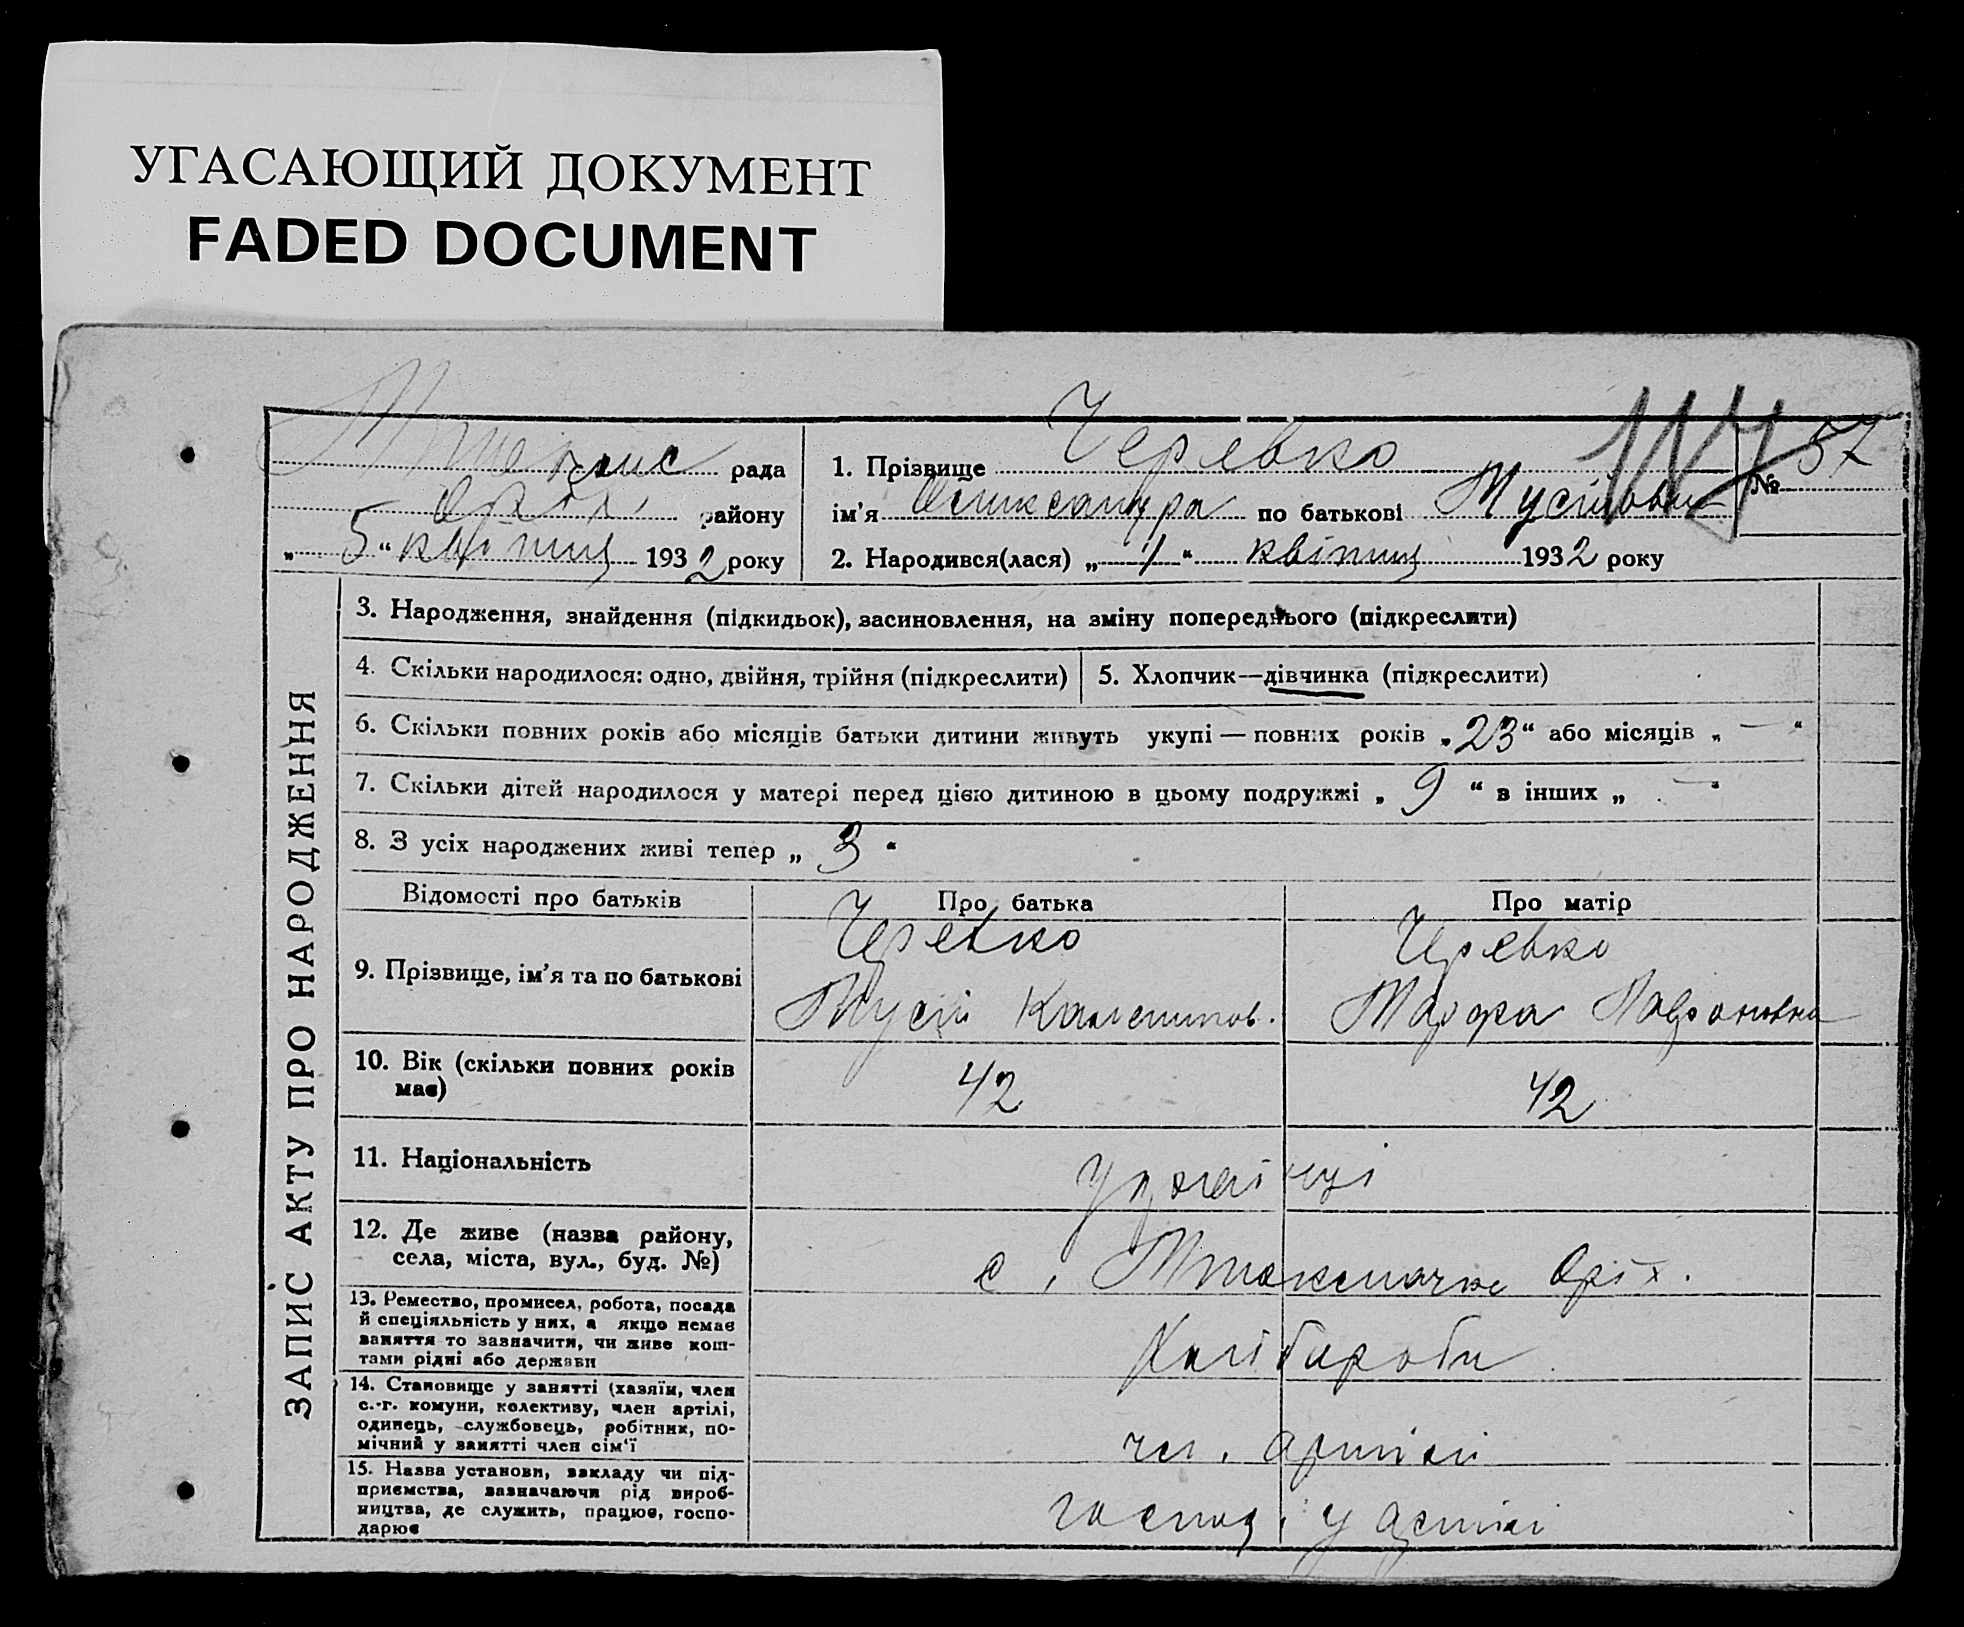 УГАСАЮЩИЙ ДОКУМЕНТ
FADED DOCUMENT
рада
району
„ 5 “ квітня 1932 року
1. Прізвище Черевко
ім'я Олександра по батькові Мусіївн
№ 57
2. Народився(лася) „ 1 “ квітня 1932 року
ЗАПИС АКТУ ПРО НАРОДЖЕННЯ
3. Народження, знайдення (підкидьок), засиновлення, на зміну попереднього (підкреслити)
4. Скільки народилося: одно, двійня, трійня (підкреслити)
5. Хлопчик—дівчинка (підкреслити)
6. Скільки повних років або місяців батьки дитини живуть укупі — повних років „ 23 “ або місяців „ — “
7. Скільки дітей народилося у матері перед цією дитиною в цьому подружжі „ 9 “ в інших „ — “
8. З усіх народжених живі тепер „ 3 “
Відомості про батьків
Про батька
Про матір
9. Прізвище, ім'я та по батькові
Черевко
Мусій
Черевко
Марфа
10. Вік (скільки повних років
має)
42
42
11. Національність
українці
12. Де живе (назва району,
села, міста, вул., буд. №)
с. Оріх.
13. Ремество, промисел, робота, посада
й спеціяльність у них, а якщо немає
заняття то зазначити, чи живе кош-
тами рідні або держави
Хлібороби
14. Становище у занятті (хазяїн, член
с.-г. комуни, колективу, член артілі,
одинець, службовець, робітник, по-
мічний у занятті член сім'ї
чл. артілі
15. Назва установи, закладу чи під-
приємства, зазначаючи рід вироб-
ництва, де служить, працює, госпо-
дарює
господ. у артілі